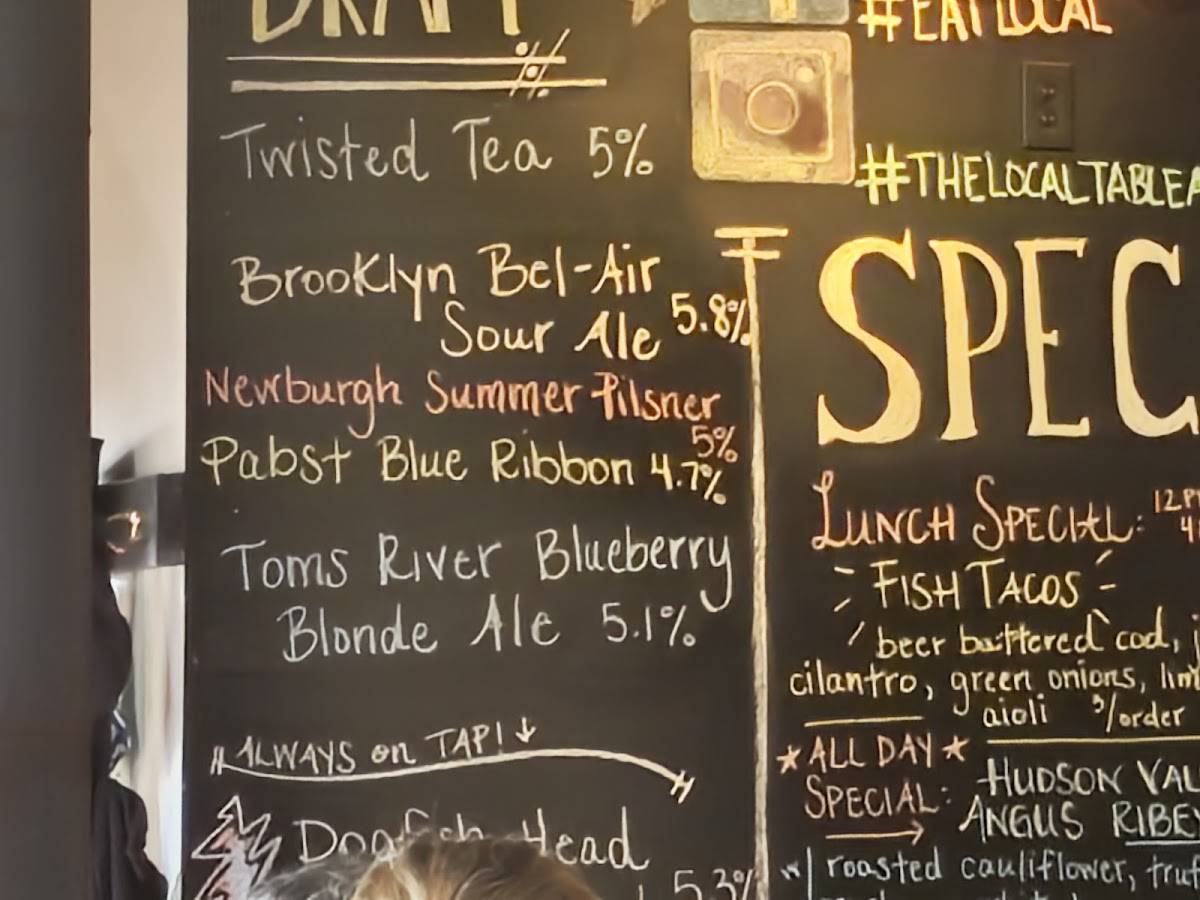 DRAFT
Twisted Tea 5%
Brooklyn Bel-Air
Sour Ale 5.8%
Newburgh Summer Pilsner
5%
Pabst Blue Ribbon 4.7%
Toms River Blueberry
Blonde Ale 5.1%
ALWAYS on TAP!
Dogfish Head
5.3%
#EATLOCAL
#THELOCALTABLEA
SPEC
LUNCH SPECIAL:
FISH TACOS
beer battered cod,
cilantro, green onions, lim
aioli 3/order
ALL DAY
SPECIAL: HUDSON VAL
ANGUS RIBEY
w/ roasted cauliflower, truf